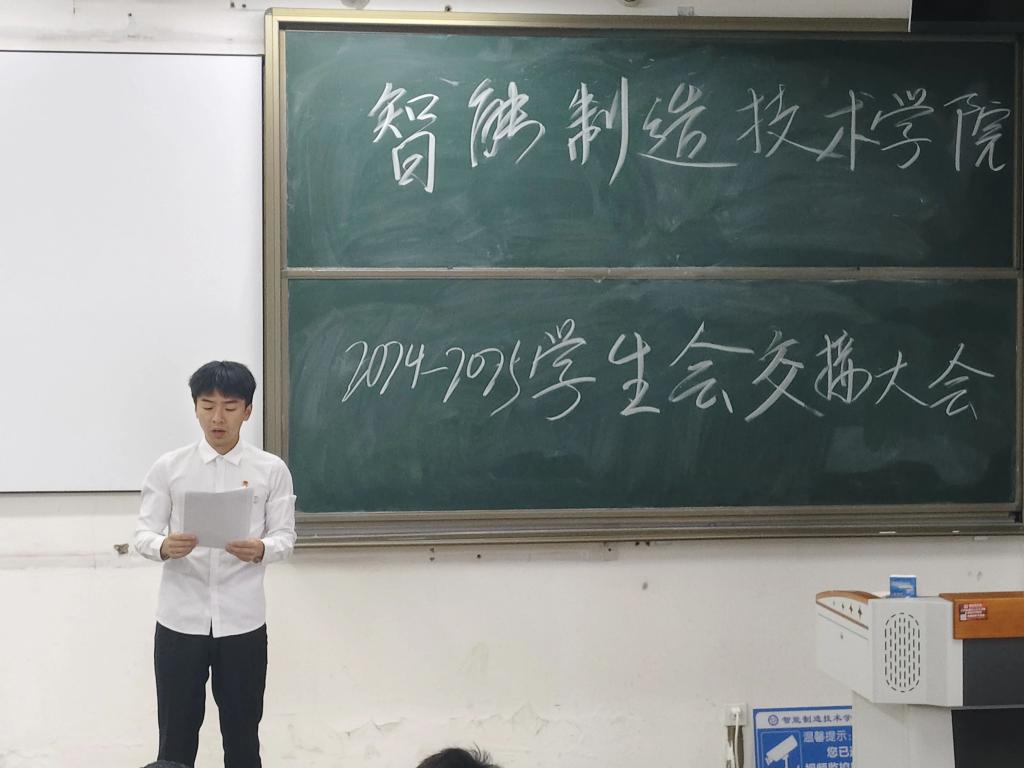 智能制造技术学院
2024-2025学生会交接大会
智能制造技术学
温馨提示:
您已进
视频监控